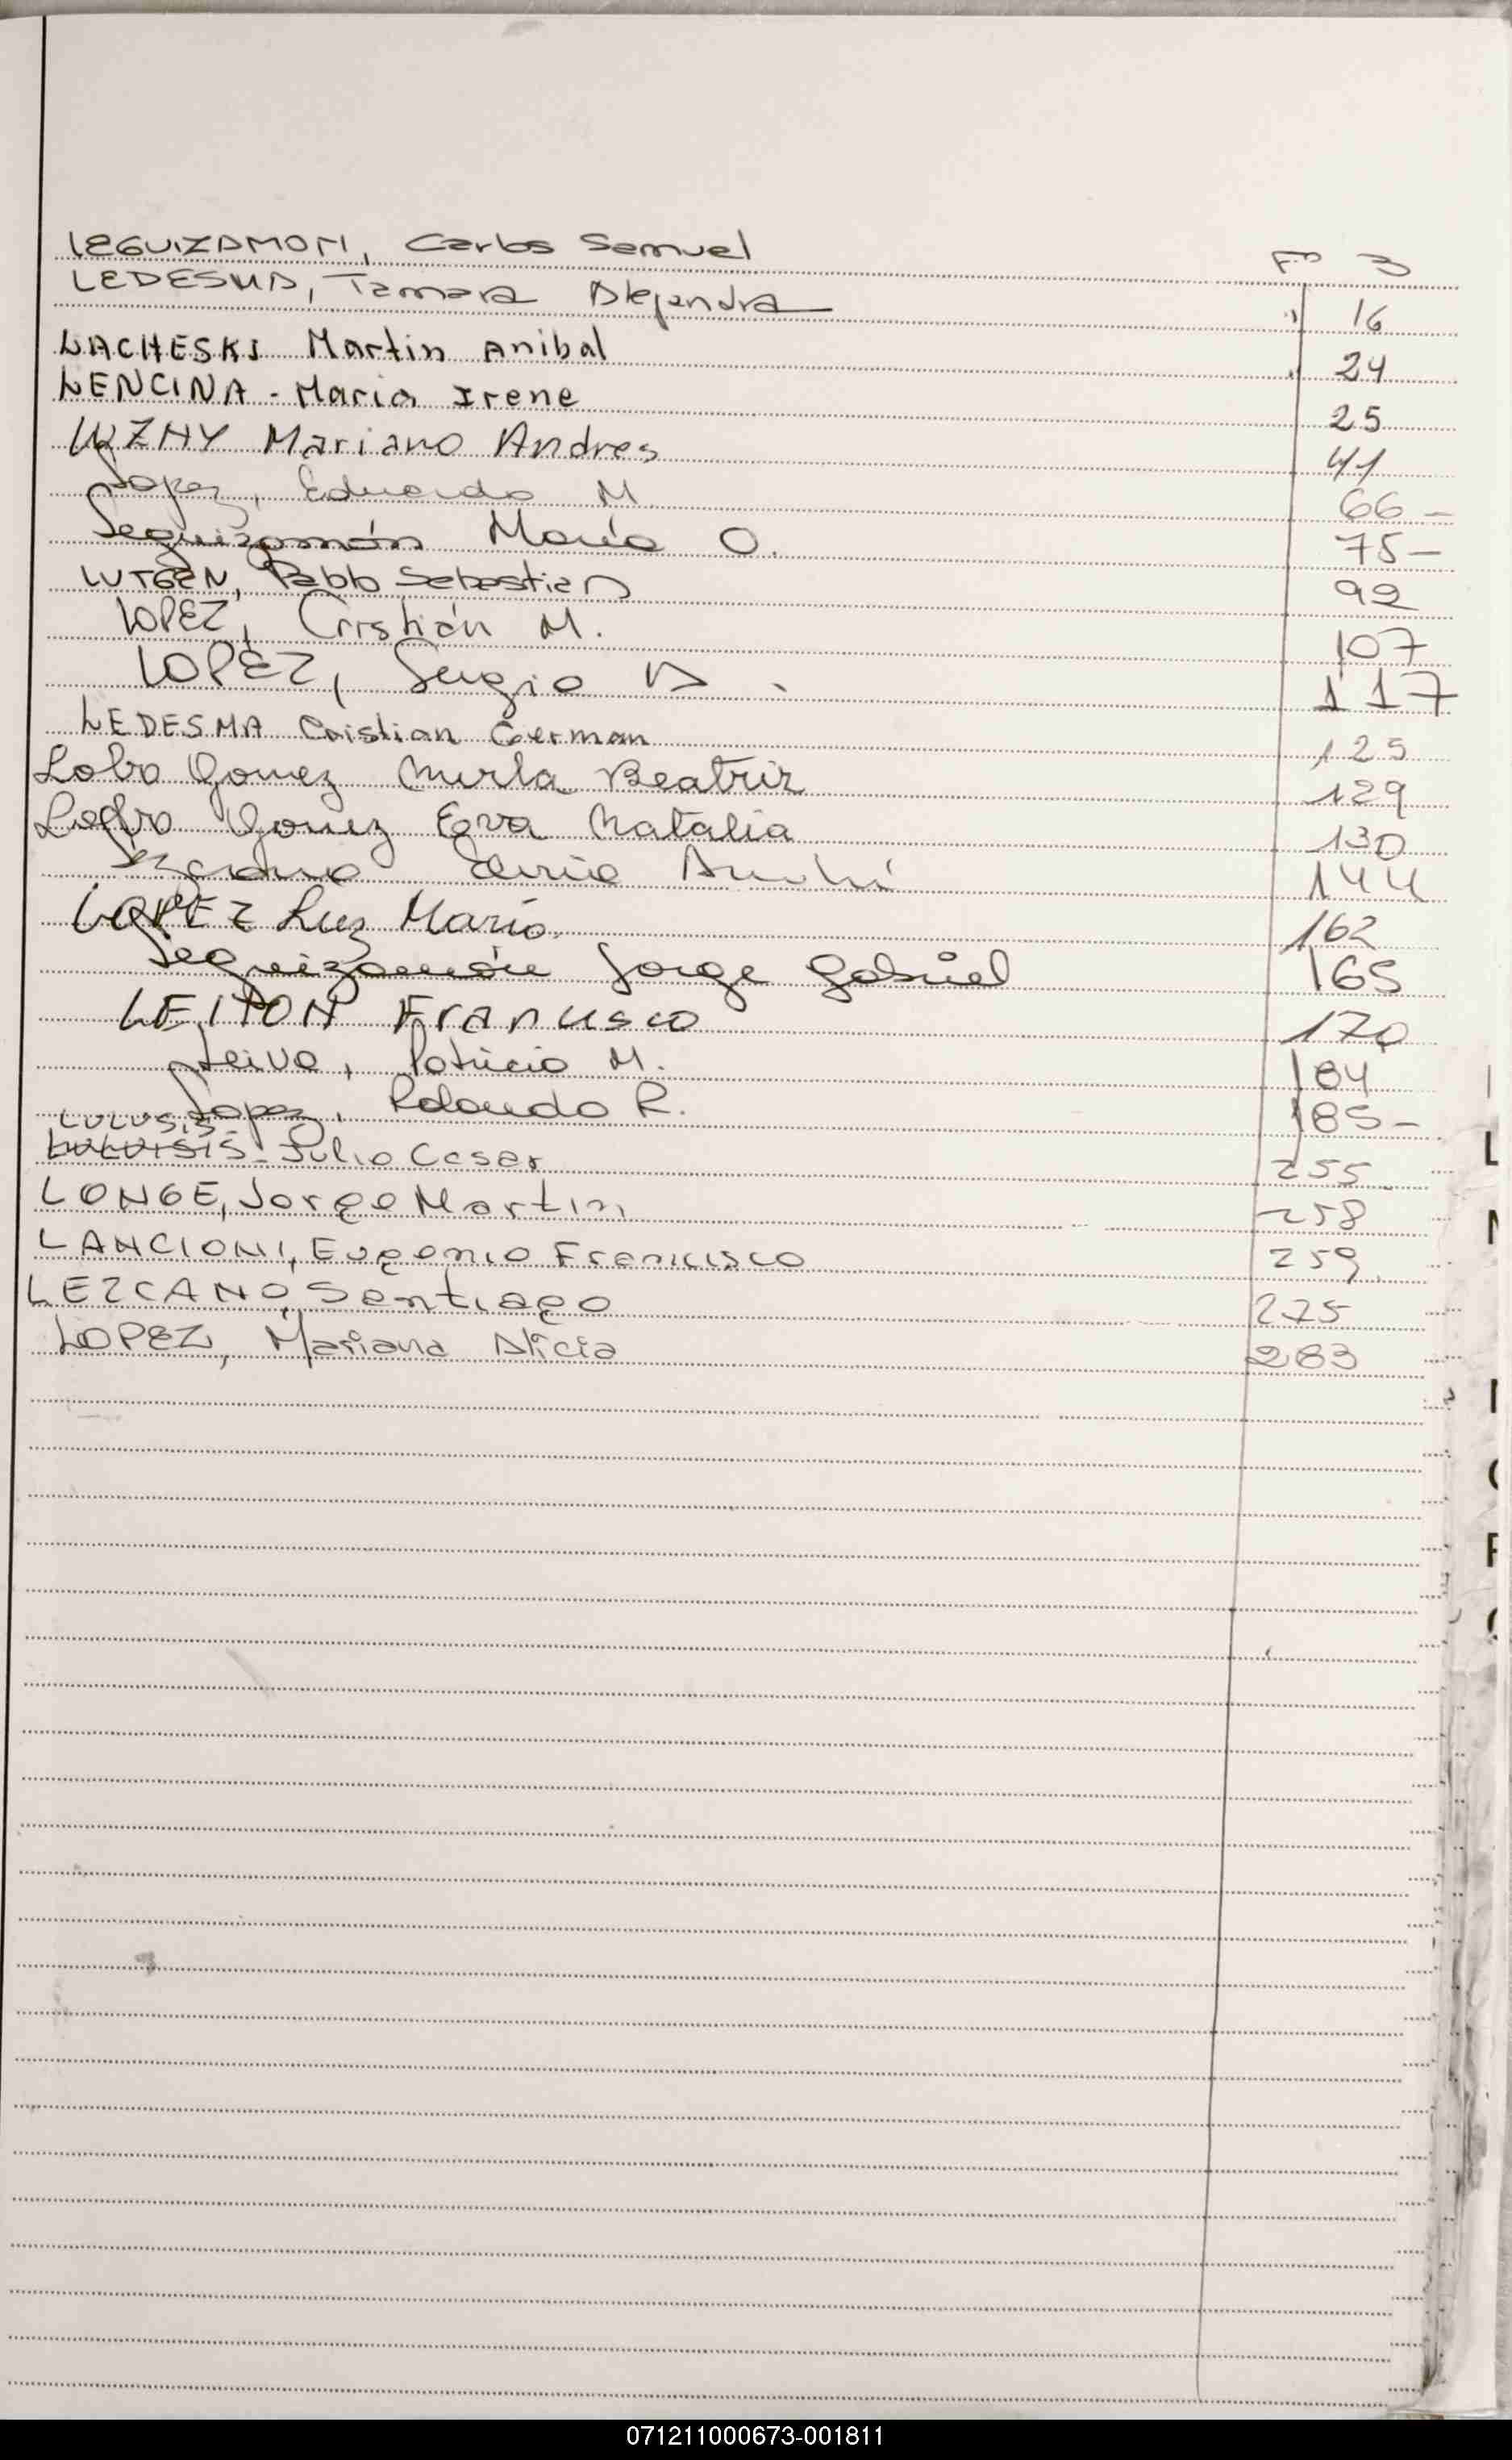 LEGUIZAMON, Carlos Samuel Fº 3
LEDESMA, Tamara Alejandra " 16
LACHESKI Martin Anibal " 24
LENCINA - Maria Irene 25
LUZNY Mariano Andres 41
Lopez, Eduardo M. 66 -
Leguizamón María O. 75 -
LUTGEN, Pablo Sebastian 92
LOPEZ, Cristián M. 107
LOPEZ, Sergio A. 117
LEDESMA Cristian German 125
Lobo Gomez Mirla Beatriz 129
Lobo Gomez Eva Natalia 130
Lezcano 144
LOPEZ Luz María. 162
Leguizamón Jorge Gabriel 165
LEITON Francisco 170
Leiva, Patricio M. 184
Lopez, Rolando R. 185 -
LULUSIS
Julio Cesar 255
LONGE, Jorge Martin 258
LANCIONI, Eugenio Francisco 259
LEZCANO, Santiago 275
LOPEZ, Mariana Alicia 283
L
N
071211000673-001811